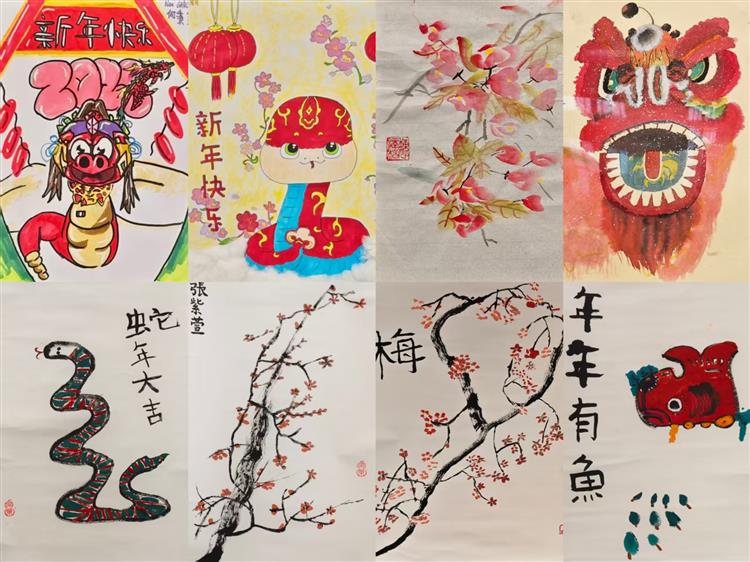 新年快乐
2025
新年快乐
蛇年大吉
張紫萱
梅
年年有魚